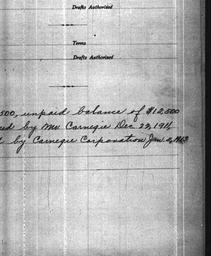 Drafts Authorized
Terms
Drafts Authorized
500, unpaid balance of $12,500
ed by Mr. Carnegie Dec. 22, 191
by Carnegie Corporation Jan. 2, 1913